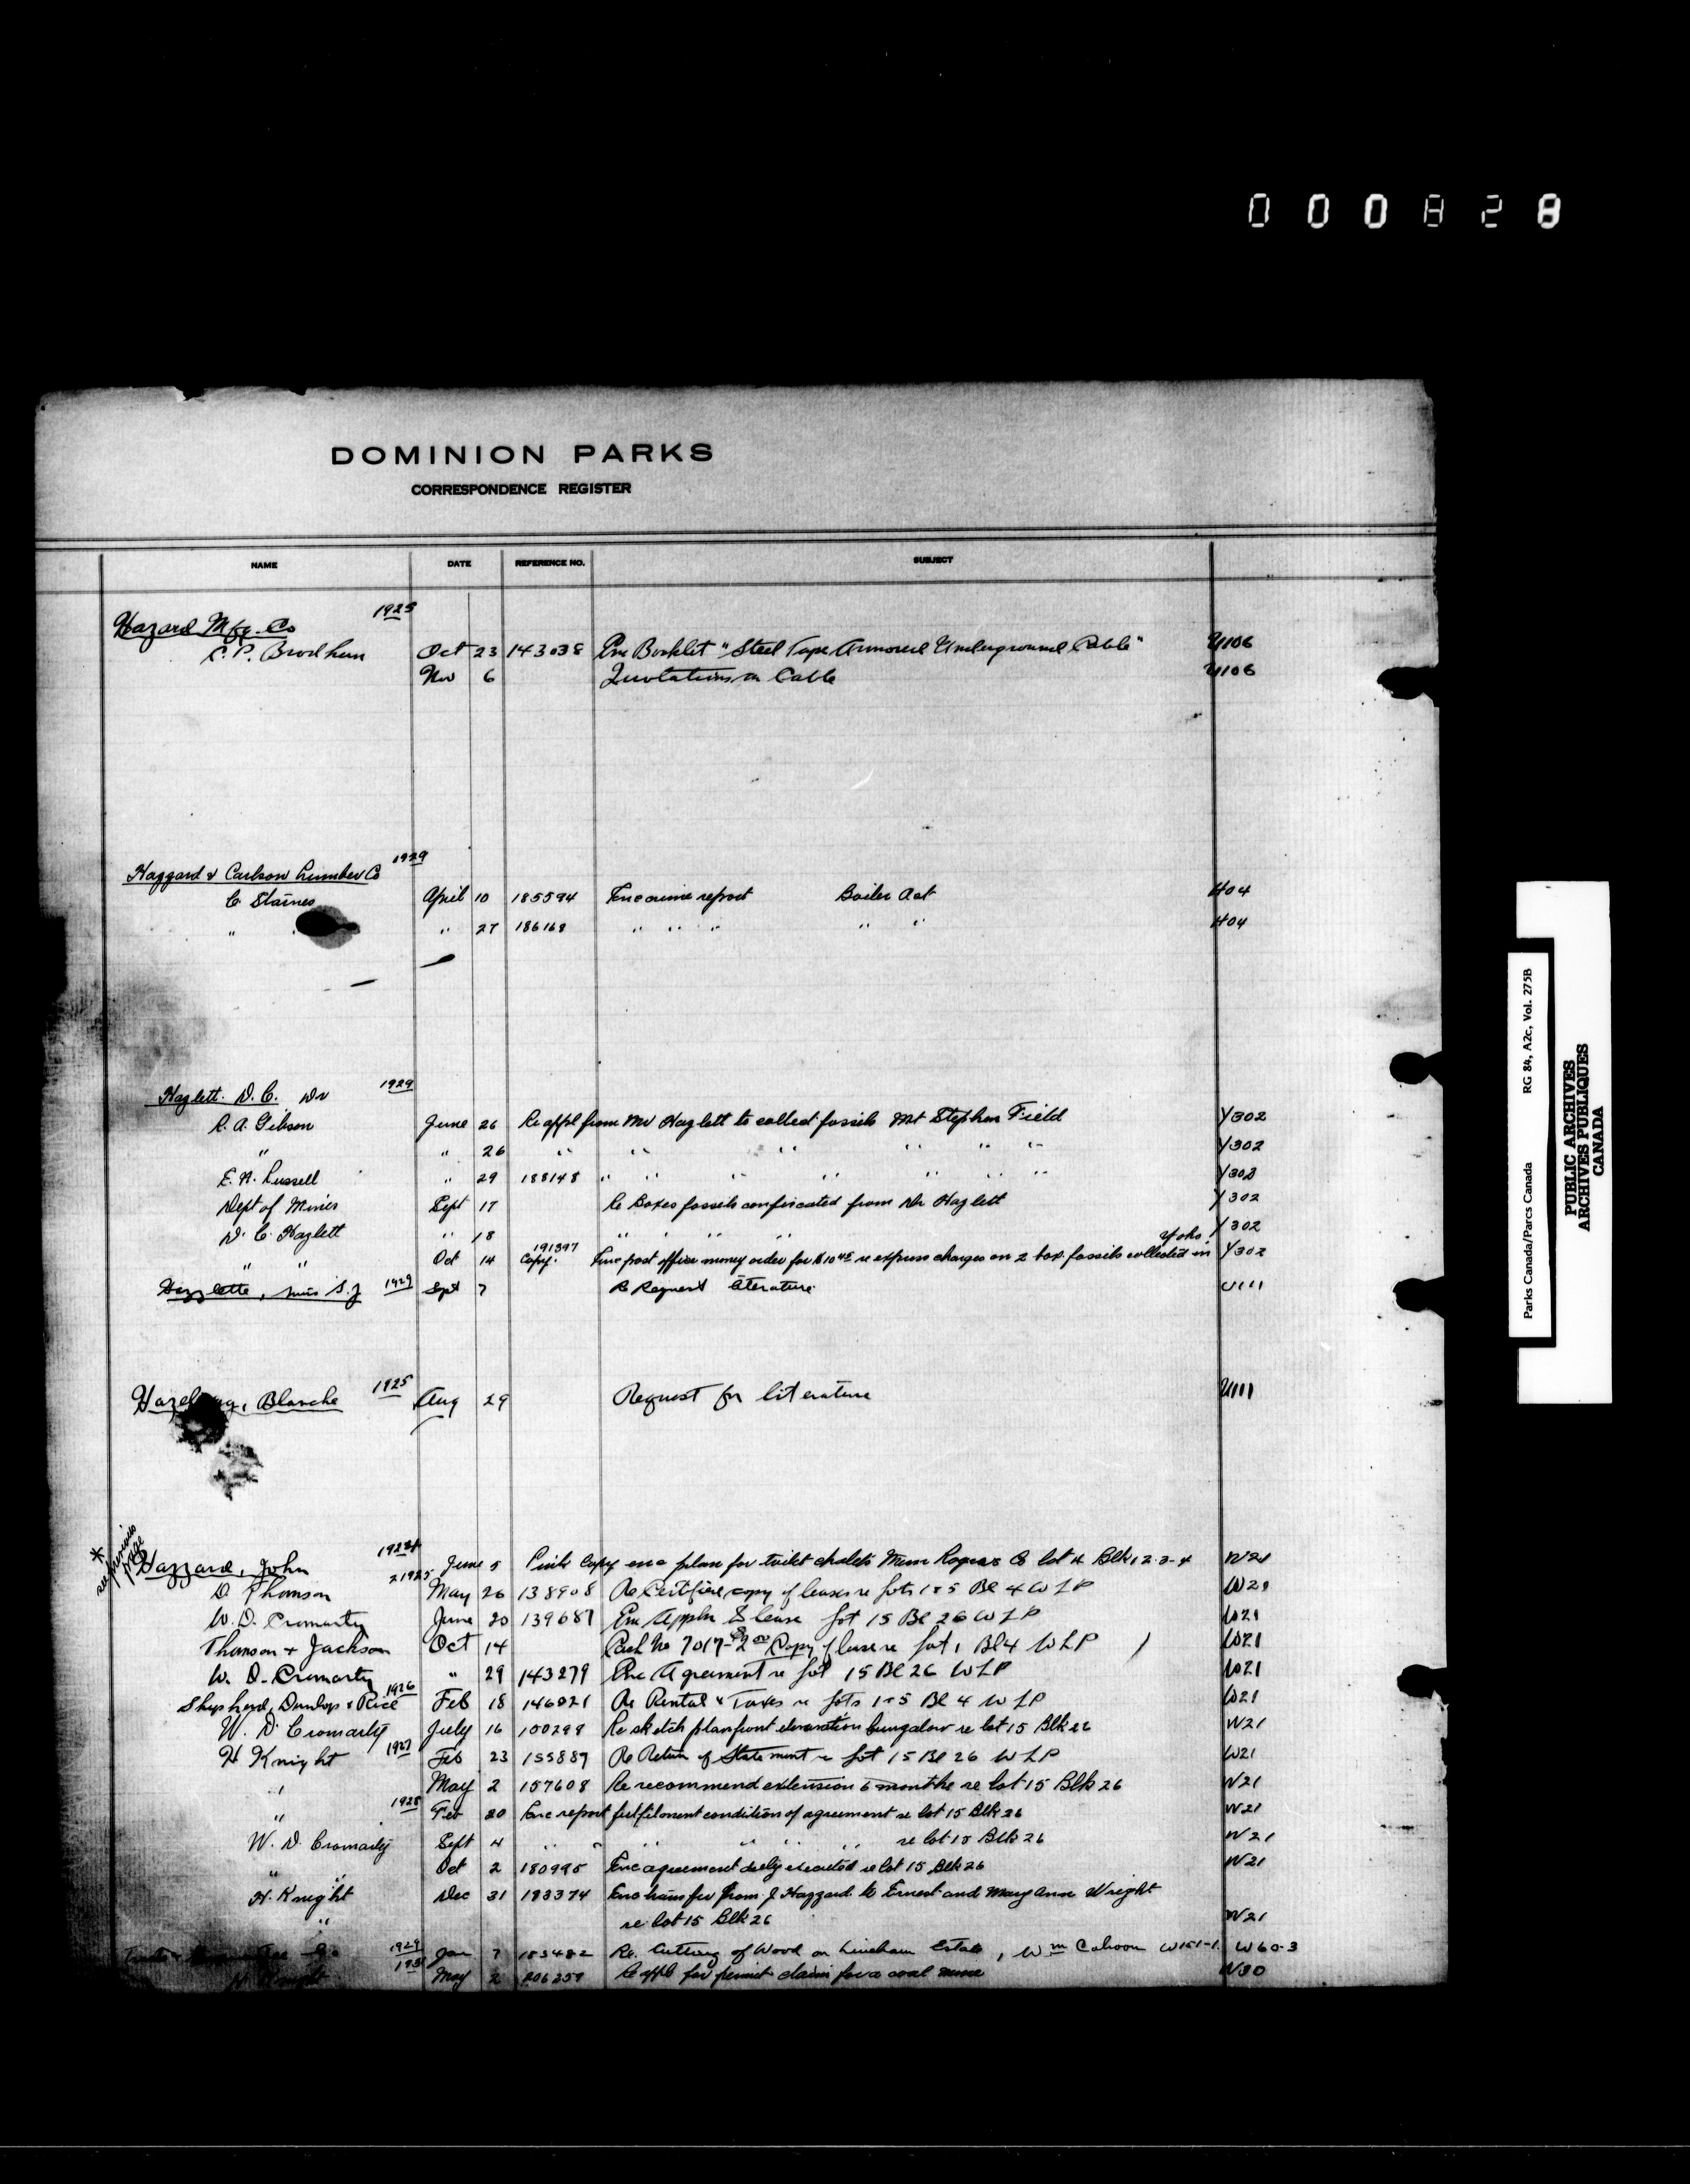 000828
DOMINION PARKS
CORRESPONDENCE REGISTER
NAME DATE REFERENCE NO. SUBJECT
Hazard Mfg. Co 1925
C. P. Brodhun Oct 23 143038 Enc Booklet "Steel Tape Armored Underground Cable" U106
Nov 6 Quotations on Cable U106
Haggard & Carlson Lumber Co 1929
C. Staines April 10 185594 Enc crime report Boiler Act H04
" " 27 186168 " " " " " H04
Hazlett. D. C. Dr 1929
R. A. Gibson June 26 Re appl from Mr Hazlett to collect fossils Mt Stephen Field Y302
" " 26 " " " " " " Y302
E. N. Russell " 29 188148 " " " " " " " Y302
Dept of Mines Sept 17 Re Boxes fossils confiscated from Dr Hazlett Y302
D. C. Hazlett " 18 " " " " Y302
" " Oct 14 191397 Copy. Enc post office money order for $10 45 re express charges on 2 box fossils collected in Yoho Y302
Hazzlette, Miss S. J 1929 Sept 7 Re Request literature U111
Blanche 1925 Aug 29 Request for literature U111
* see previous page
Hazzard, John 1924 June 5 copy enc plan for toilet chalets lot 4 Blk 1 2-3-4 W21
D. Thomson 1925 May 26 138908 Re Certified copy of leases re Lots 1 & 5 Bl 4 W L P W21
W. D. Cromarty June 20 139687 Enc Appln & lease Lot 15 Bl 26 W L P W21
Thomson + Jackson Oct 14 Cash No 7017-2 00 Copy of lease re Lot 1 Bl 4 W L P W21
W. D. Cromarty " 29 143279 Enc Agreement re Lot 15 Bl 26 W L P W21
Shepherd, Dunlop & Rice 1926 Feb 18 146021 Re Rental & Taxes re Lots 1 & 5 Bl 4 W L P W21
W. D. Cromarty July 16 150298 Re sketch plan front elevation bungalow re lot 15 Blk 26 W21
H Knight 1927 Feb 23 155889 Re Return of Statement re Lot 15 Bl 26 W L P W21
" May 2 157608 Re recommend extension 6 months re lot 15 Blk 26 W21
" 1928 Feb 20 Enc report fulfilment condition of agreement re lot 15 Blk 26 W21
W. D. Cromarty Sept 4 " " " " " " re lot 15 Blk 26 W21
" " Oct 2 180995 Enc agreement duly executed re lot 15 Blk 26 W21
H. Knight Dec 31 183374 Enc transfer from J Hazzard to Ernest and Mary Ann Wright
" re lot 15 Blk 26 W21
1929 Jan 7 183482 Re. Cutting of Wood on Lineham Estate, Wm Cahoon W151-1 W60-3
H. Knight May 2 206259 Re appl for permit claim for a coal mine W30
Parks Canada/Parcs Canada RG 84, A2c, Vol. 275B
PUBLIC ARCHIVES
ARCHIVES PUBLIQUES
CANADA